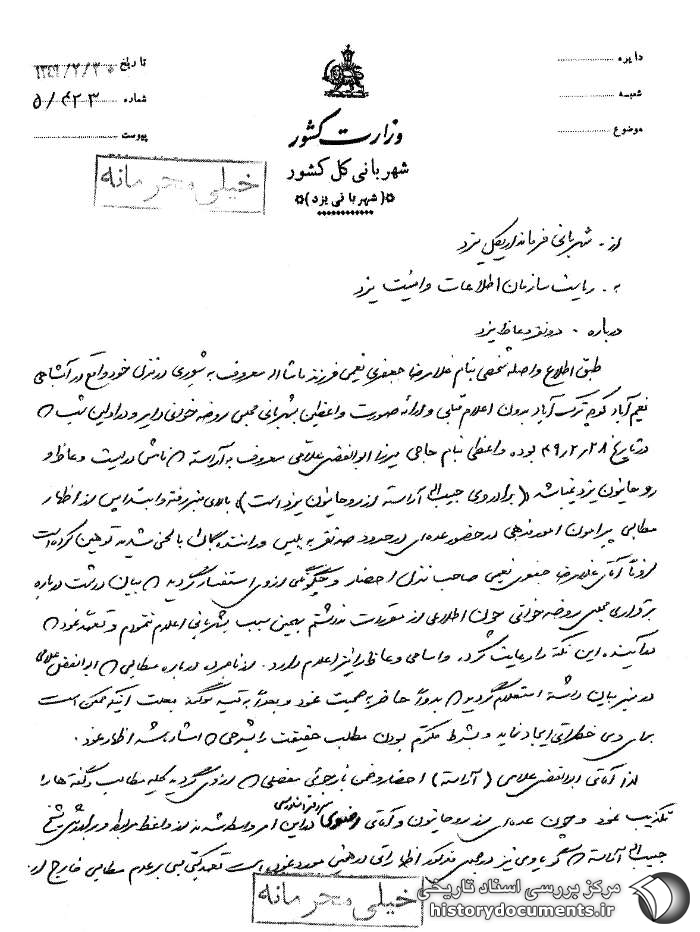 دایره
شعبه
موضوع
تاریخ ۱۳۴۹/۲/۳۰
شماره ۵/۴۲۳
پیوست
وزارت کشور
شهربانی کل کشور
(شهربانی یزد)
خیلی محرمانه
از - شهربانی فرمانداریکل یزد
به - ریاست سازمان اطلاعات و امنیت یزد
درباره - دو نفر وعاظ یزد
طبق اطلاع واصله شخصی بنام غلامرضا جعفری نعیمی فرزند ماشااله معروف به شوری در منزل خود واقع در
نعیم آباد کوچه ترک آباد بدون اعلام قبلی و ارائه صورت واعظین بشهربانی مجلس روضه خوانی دایر و در اولین شب
در تاریخ ۴۹٫۲٫۲۸ بوده واعظی بنام حاجی میرزا ابوالفضل علاقمی معروف به آراسته نامش در لیست وعاظ و
روحانیون یزد نمیباشد (برادر روی حبیب اله آراسته از روحانیون یزد است) بالای منبر رفته و ابتدا پس از اظهار
مطالبی پیرامون امور مذهبی در حضور عده‌ای در حدود صد نفر به پلیس و رانندگان با لحنی شدید توهین کرده است
غلامرضا جعفری نعیمی صاحب منزل احضار و چگونگی از وی استفسار گردید بیان داشت درباره
برقراری مجلس روضه خوانی چون اطلاعی از مقررات نداشتم بهمین سبب بشهربانی اعلام ننمودم و تعهد نمود
در آینده این نکته را رعایت کرده و اسامی وعاظ را نیز اعلام دارد. از نامبرده درباره مطالبی ابوالفضل
در منبر بیان داشته استعلام گردید بدواً حاضر به صحبت نبود و بعداً به قید سوگند بعلت اینکه ممکن است
برای وی خطراتی ایجاد نماید و بشرط مکتوم بودن مطلب حقیقت را بشرحی اشاره شد اظهار نمود.
لذا آقای ابوالفضل (آراسته) احضار و ضمن بازجوئی مفصلی از وی گردید کلیه مطالب و گفته‌ها را
تکذیب نمود و چون عده‌ای از روحانیون و آقای رضوی در این امر واسطه شدند از واعظ مزبور و برادرش شیخ
حبیب اله آراسته گویا وی نیز در مجلس مذکور اظهاراتی در همین مورد نموده است تعهد کتبی مبنی بر عدم مطالبی خارج از
خیلی محرمانه
مرکز بررسی اسناد تاریخی
historydocuments.ir